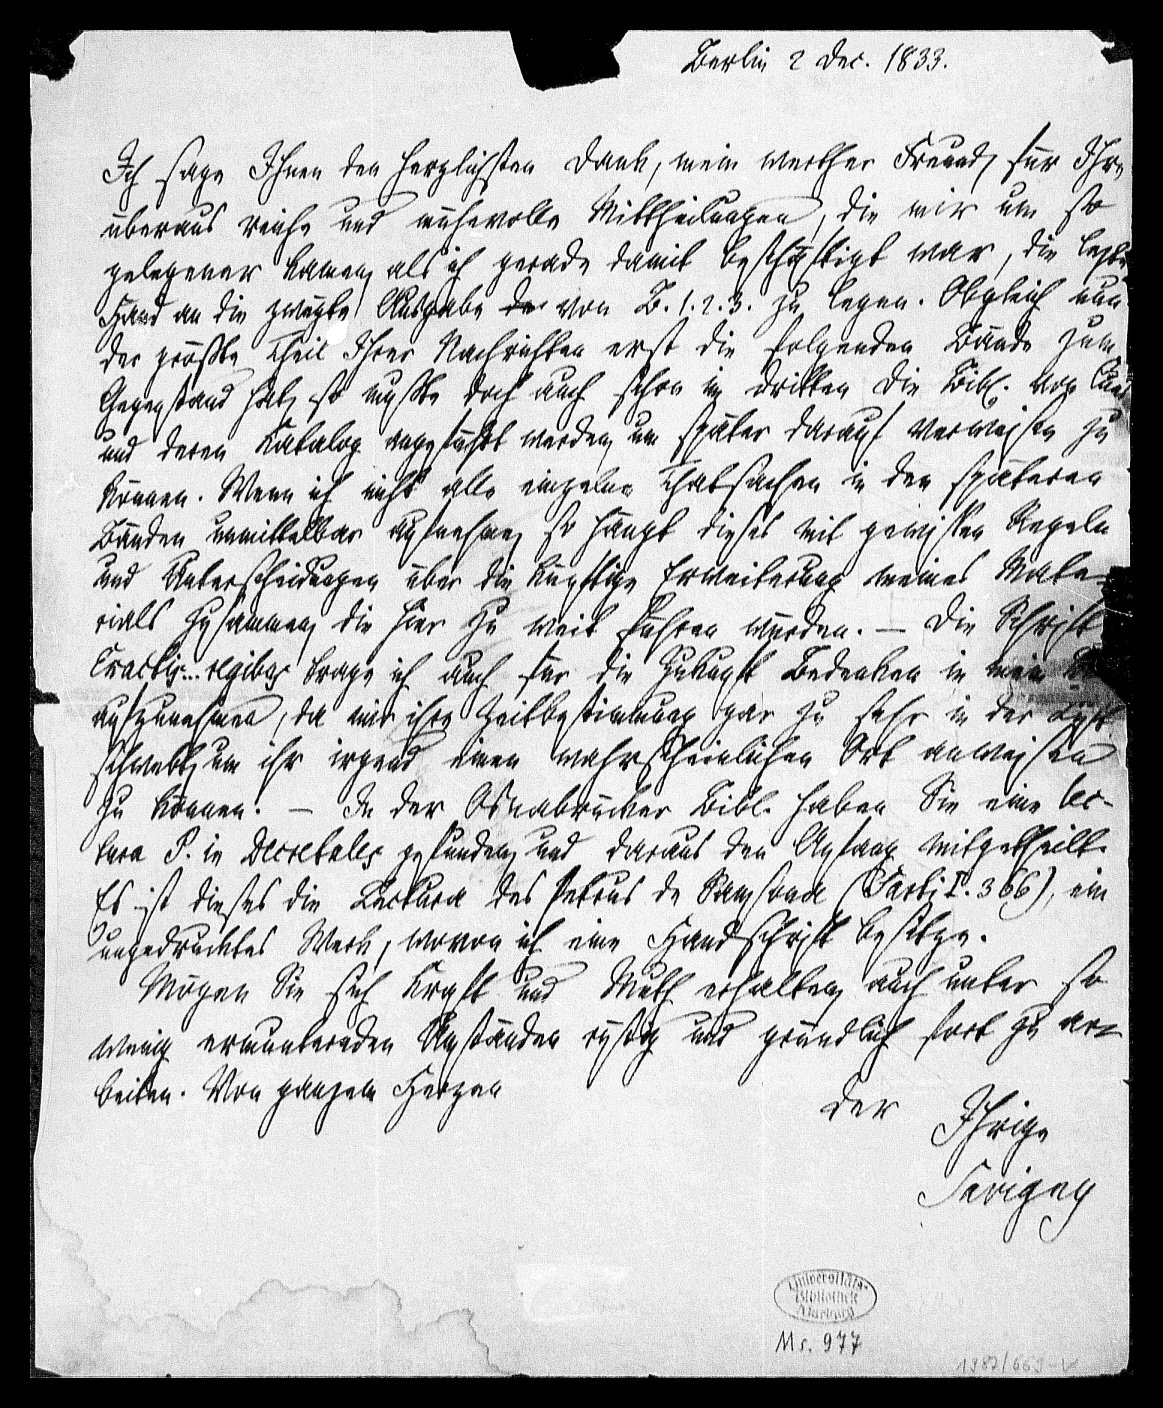 Berlin 2 Dec. 1833.
Ich sage Ihnen den herzlichsten Dank, mein werther Freund, für Ihre
überaus reiche und mühevolle Mittheilungen, die mir um so
gelegener kamen, als ich gerade damit beschäftigt war, die letzte
Hand an die zweyte Ausgabe von B. 1. 2. 3. zu legen. Obgleich nun
der größte Theil Ihrer Nachrichten erst die folgenden Bände zum
Gegenstand hat, so mußte doch auch schon im dritten die Bibl. von Cues
und deren Katalog angeführt werden, um später darauf verweisen zu
können. Wenn ich nicht alle einzelne Thatsachen in den späteren
Bänden unmittelbar aufnehme, so hängt dieses mit gewissen Regeln
und Unterscheidungen über die künftige Erweiterung meines Mate-
rials zusammen, die hier zu weit führen würden. — Die Schrift
trage ich auch für die Zukunft Bedenken in mein
aufzunehmen, da mir ihre Zeitbestimmung gar zu sehr in der Luft
schwebt, um ihr irgend einen wahrscheinlichen Ort anweisen
zu können. — In der Osnabrücker Bibl. haben Sie eine lec-
tura P. in Decretales gefunden, und daraus den Anfang mitgetheilt.
Es ist dieses die Lectura des Petrus de Samsona (Sarti I. 366), ein
ungedrucktes Werk, wovon ich eine Handschrift besitze.
Mögen Sie sich Kraft und Muth erhalten, auch unter so
wenig ermunternden Umständen rüstig und gründlich fort zu ar-
beiten. Von ganzem Herzen
der Ihrige
Savigny
Universitäts-
Bibliothek
Marburg
Ms. 977